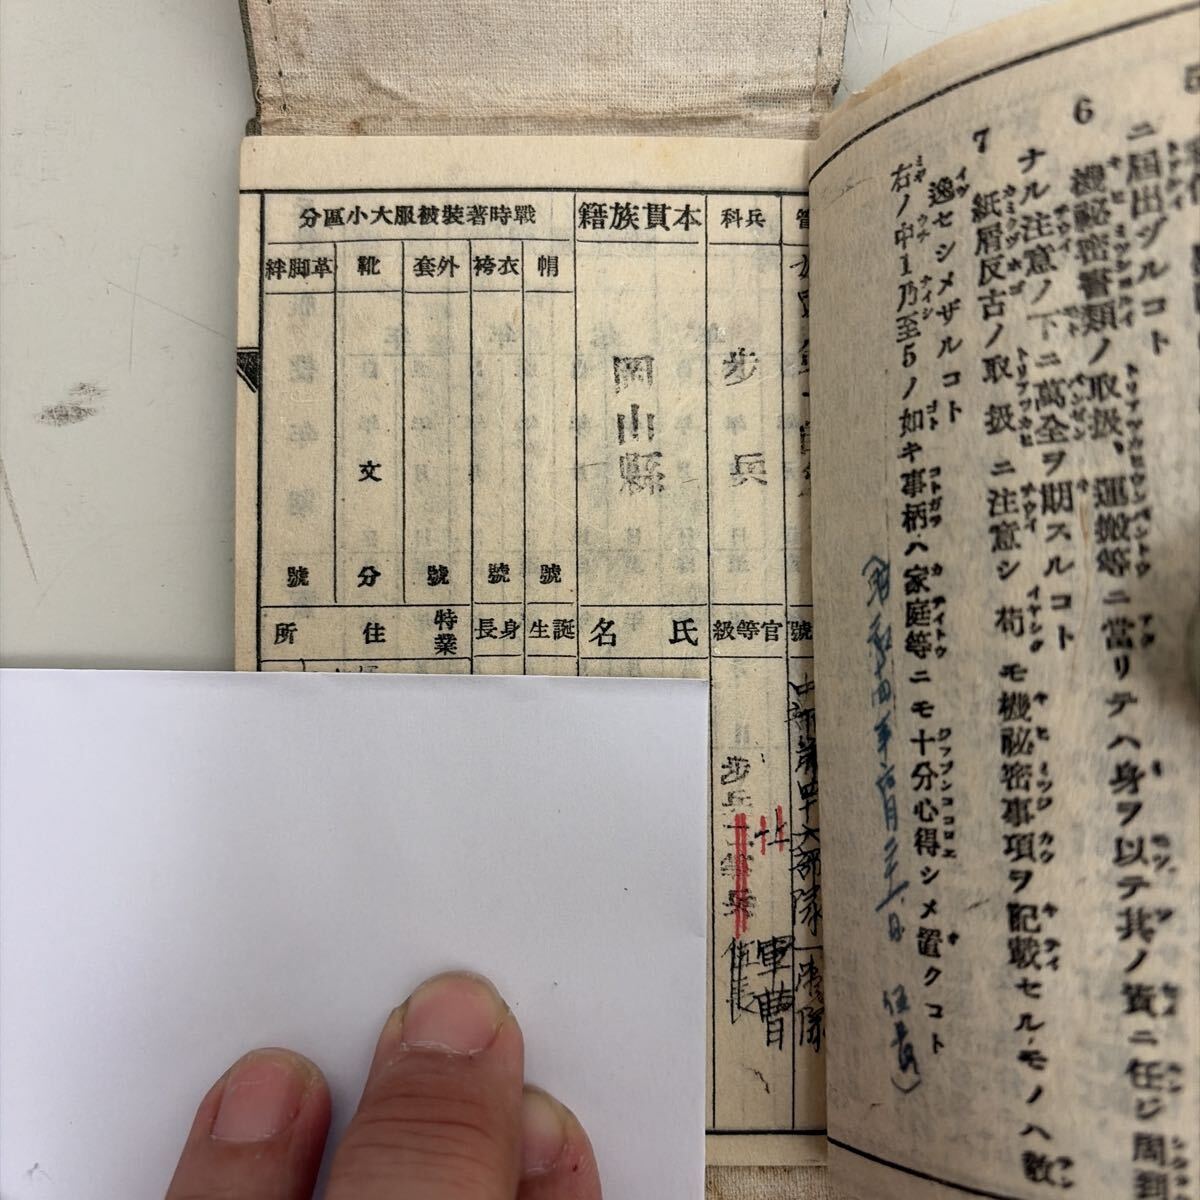 ニ屆出ヅルコト
6 機祕密書類ノ取扱、運搬等ニ當リテハ身ヲ以テ其ノ責ニ任ジ周到
ナル注意ノ下ニ萬全ヲ期スルコト
7 紙屑反古ノ取扱ニ注意シ苟モ機祕密事項ヲ記載セルモノハ散
逸セシメザルコト
右ノ中1乃至5ノ如キ事柄ハ家庭等ニモ十分心得シメ置クコト
伍長)
號
中部第四十六部隊
兵科
步兵
官等級
步兵
軍曹
伍長
本貫族籍
岡山縣
氏名
戰時著裝被服大小區分
帽
號
衣袴
號
外套
號
靴
文
分
革脚絆
號
誕生
身長
特業
住所